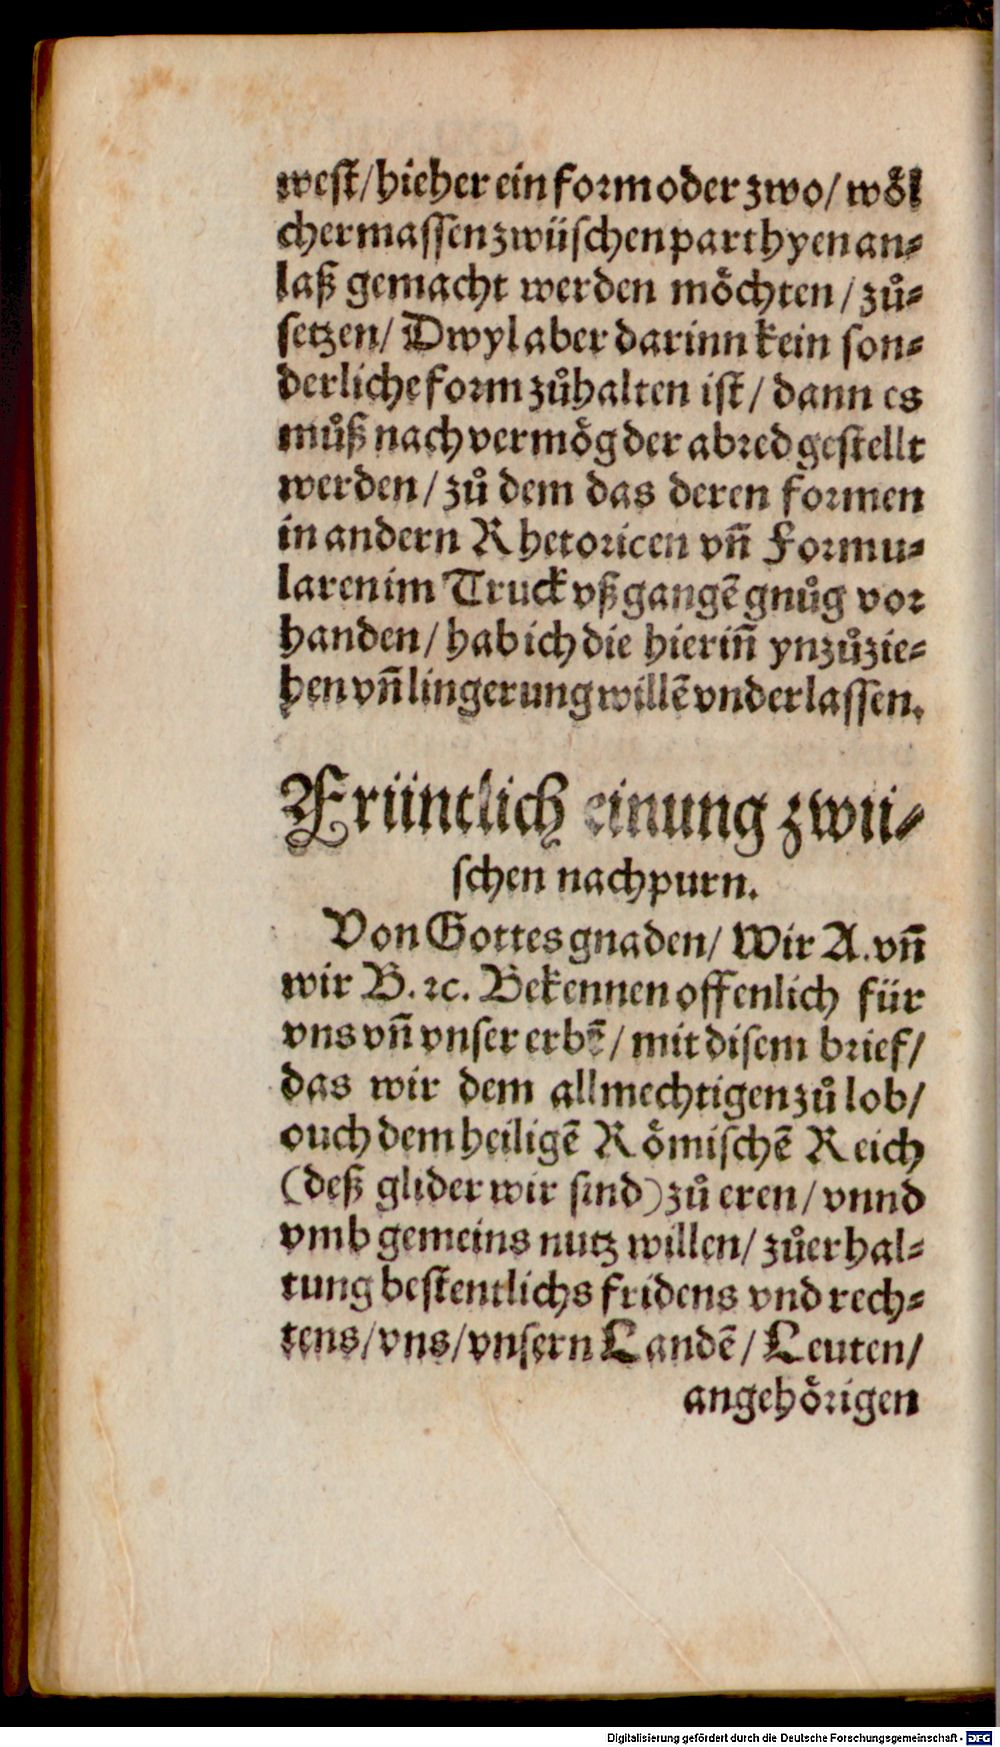 west/ hieher ein form oder zwo/ wöl
cher massen zwüschen parthyen an⸗
laß gemacht werden möchten/ zů⸗
setzen/ Dwyl aber darinn kein son⸗
derliche form zůhalten ist/ dann es
můß nach vermög der abred gestellt
werden/ zů dem das deren formen
in andern Rhetoricen vñ Formu⸗
laren im Truck vßgangẽ gnůg vor
handen/ hab ich die hieriñ ynzůzie⸗
hen vñ lingerung willẽ vnderlassen.
Früntlich einung zwü⸗
schen nachpurn.
Von Gottes gnaden/ Wir A. vñ
wir B. ꝛc. Bekennen offenlich für
vns vñ vnser erbẽ/ mit disem brief/
das wir dem allmechtigen zů lob/
ouch dem heiligẽ Römischẽ Reich
(deß glider wir sind) zů eren/ vnnd
vmb gemeins nutz willen/ zů erhal⸗
tung bestentlichs fridens vnd rech⸗
tens/ vns/ vnsern Landẽ/ Leuten/
angehörigen
Digitalisierung gefördert durch die Deutsche Forschungsgemeinschaft - DFG